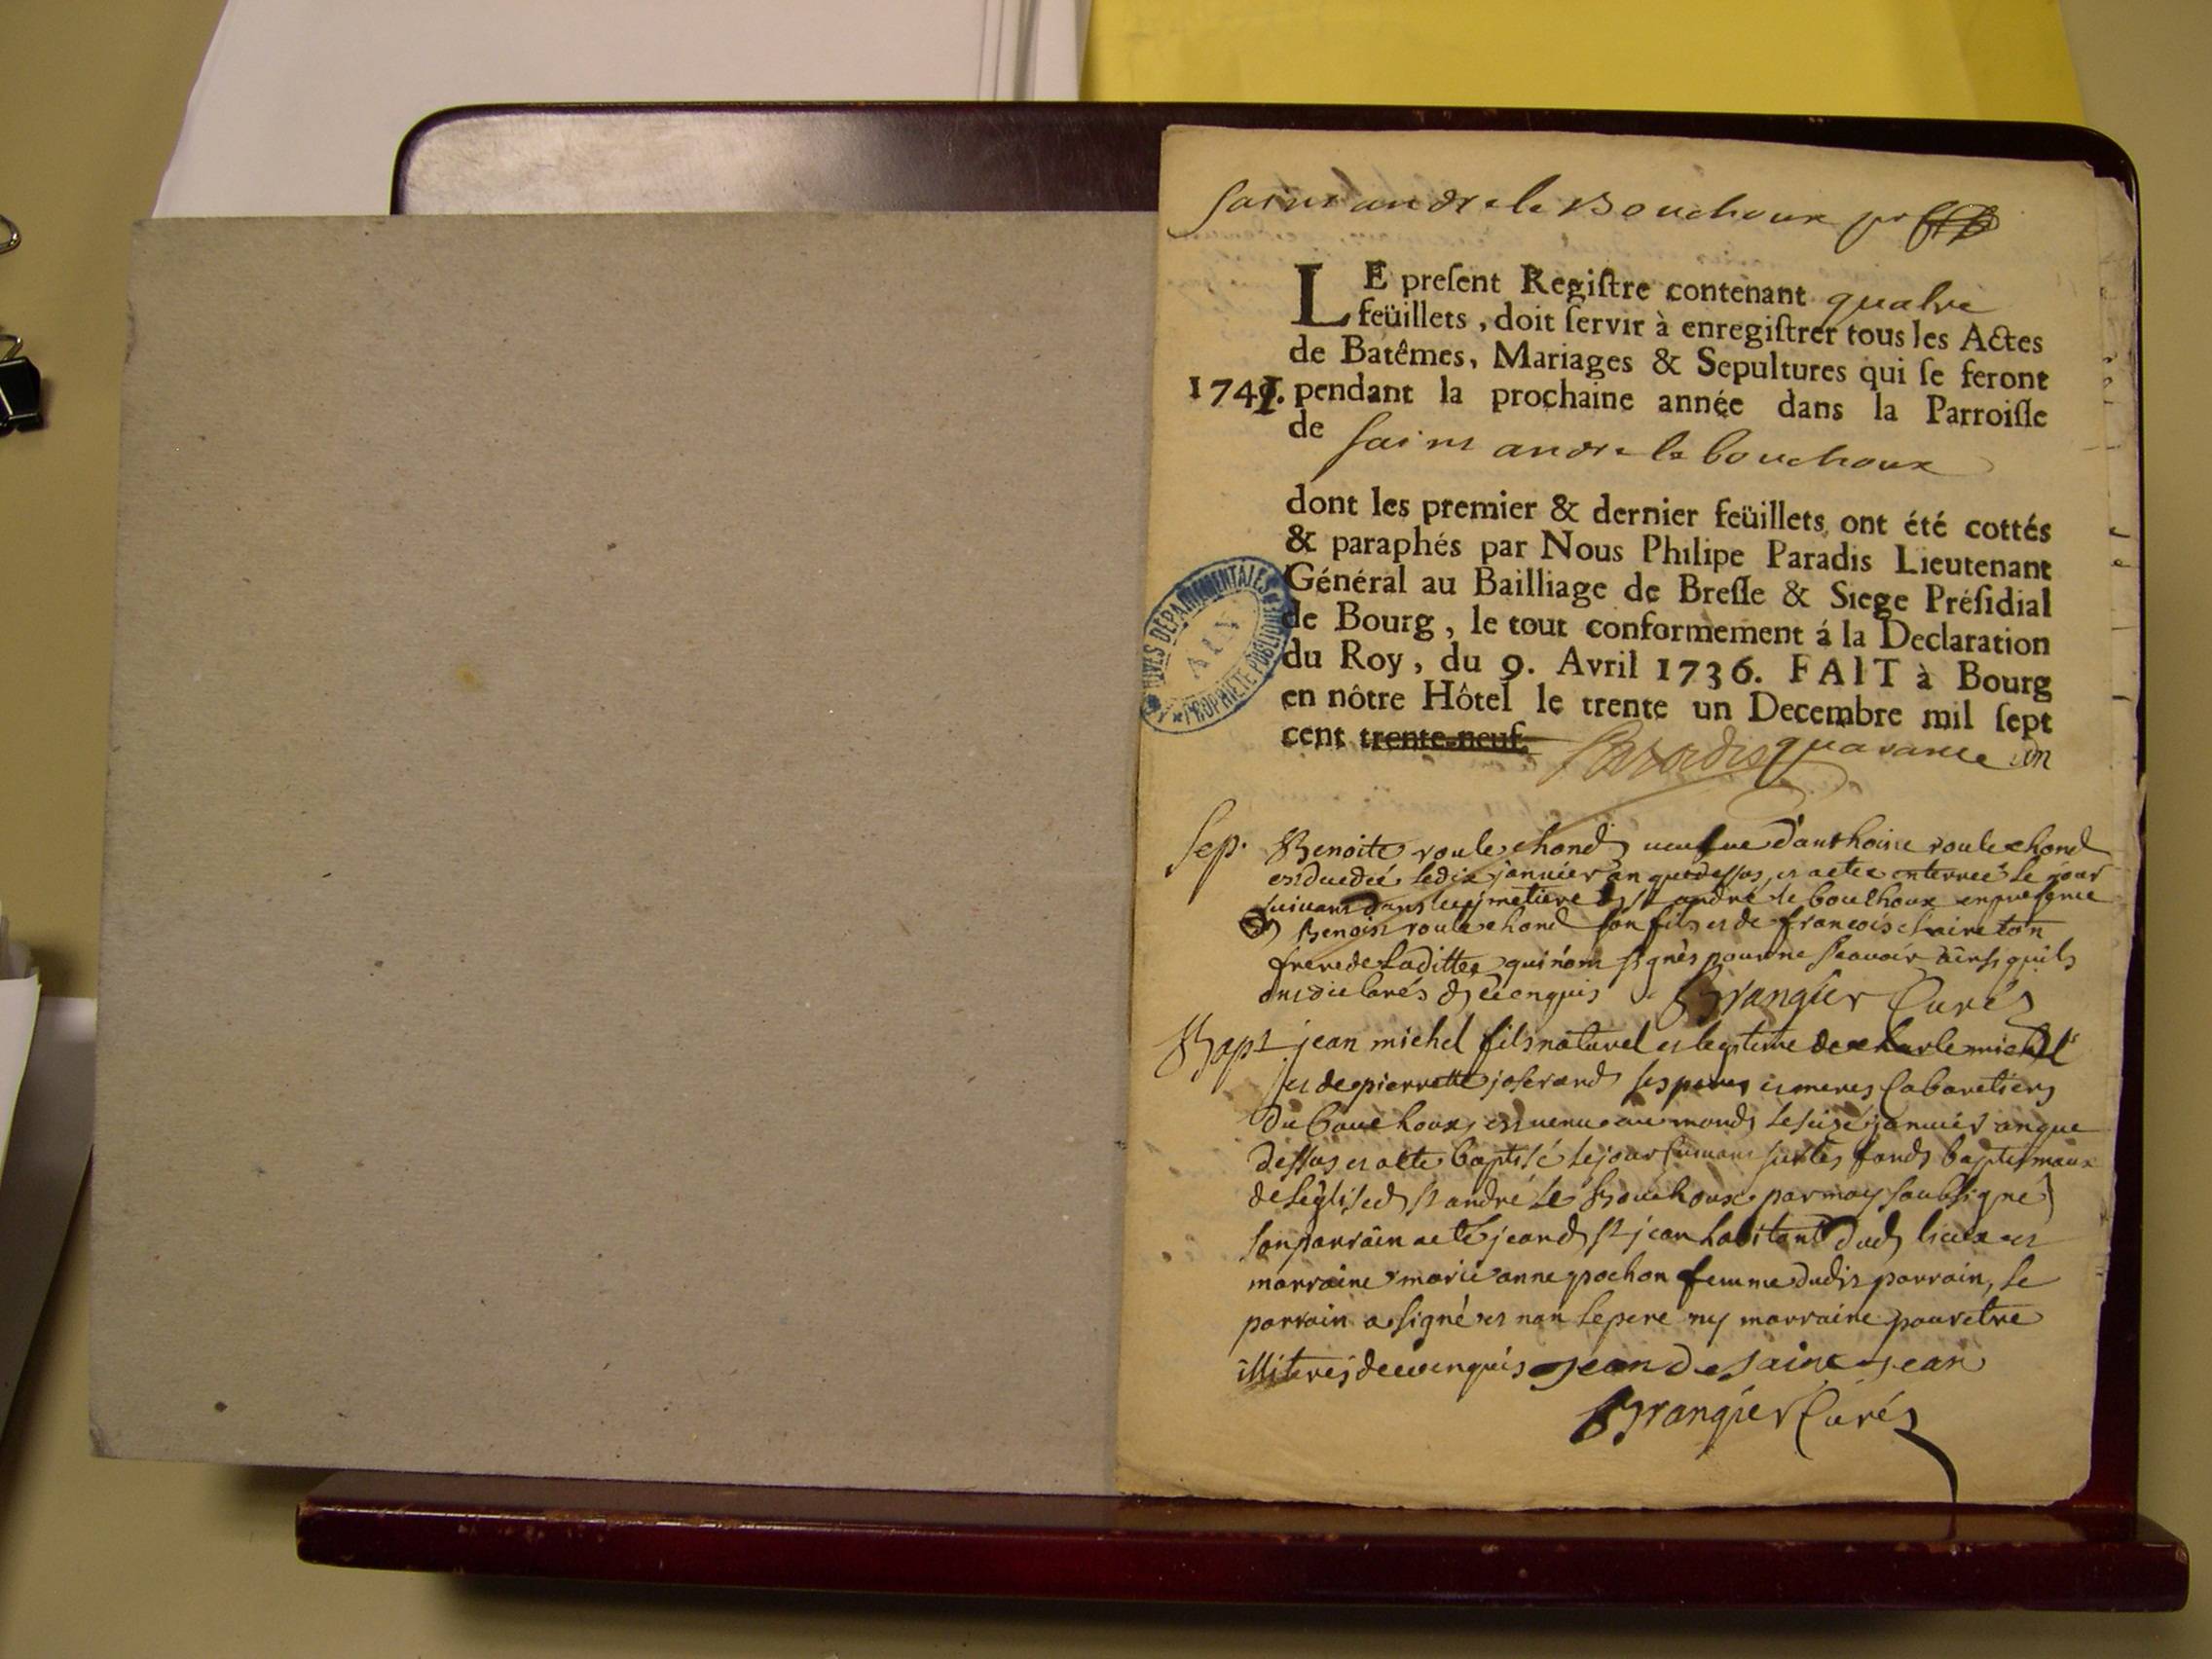 saint andre le Bouchoux pr
LE preſent Regiſtre contenant quatre
feüillets, doit ſervir à enregiſtrer tous les Actes
de Batêmes, Mariages & Sepultures qui ſe feront
1741. pendant la prochaine année dans la Parroiſſe
de saint andre le bouchoux
dont les premier & dernier feüillets ont été cottés
& paraphés par Nous Philipe Paradis Lieutenant
Général au Bailliage de Breſſe & Siege Préſidial
de Bourg, le tout conformement á la Declaration
du Roy, du 9. Avril 1736. FAIT à Bourg
en nôtre Hôtel le trente un Decembre mil ſept
cent trente-neuf. Paradis quarante un
ARCHIVES DEPARTEMENTALES
AIN
PROPRIETE PUBLIQUE
Sep. Benoite roulechond veufve d'anthoine roulechond
est decedée le dix janvier an que dessus et a etee enterree le jour
suivant dans le cymetiere de st andré le bouchoux en presence
de Benoist roulechond son fils et de francois claireton
frere de laditte qui n'ont signés pour ne scavoir ainsi quils
ont declarés de ce enquis Brangier Curés
Bapt jean michel fils naturel et legitime de charle michel
et de pierrette joserand ses peres et meres Cabaretiers
du bouchoux est venu au monde le seize janvier an que
dessus et a ete baptisé le jour suivant sur les fonds baptismaux
de leglise de st andré le Bouchoux par moy soubsigné
son parrain a eté jean de st jean habitant dud lieux et
marraine marie anne pochon femme dudit parrain, le
parrain a signé et non le pere ny marraine pour etre
illiterés de ce enquis jean de saint jean
Brangier Curés